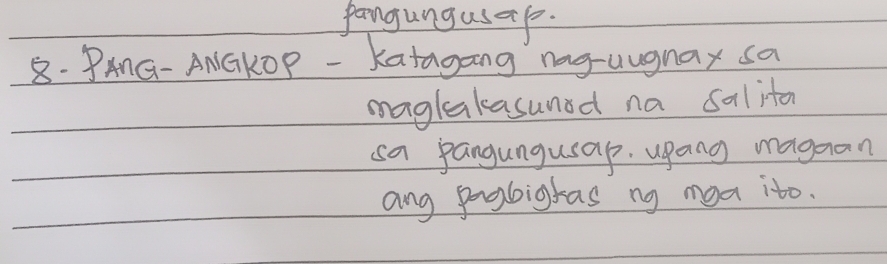 pangungusap.
8. PANG-ANGKOP - katagang nag-uugnay sa
magkakasunod na salita
sa pangungusap. upang magaan
ang pagbigkas ng mga ito.